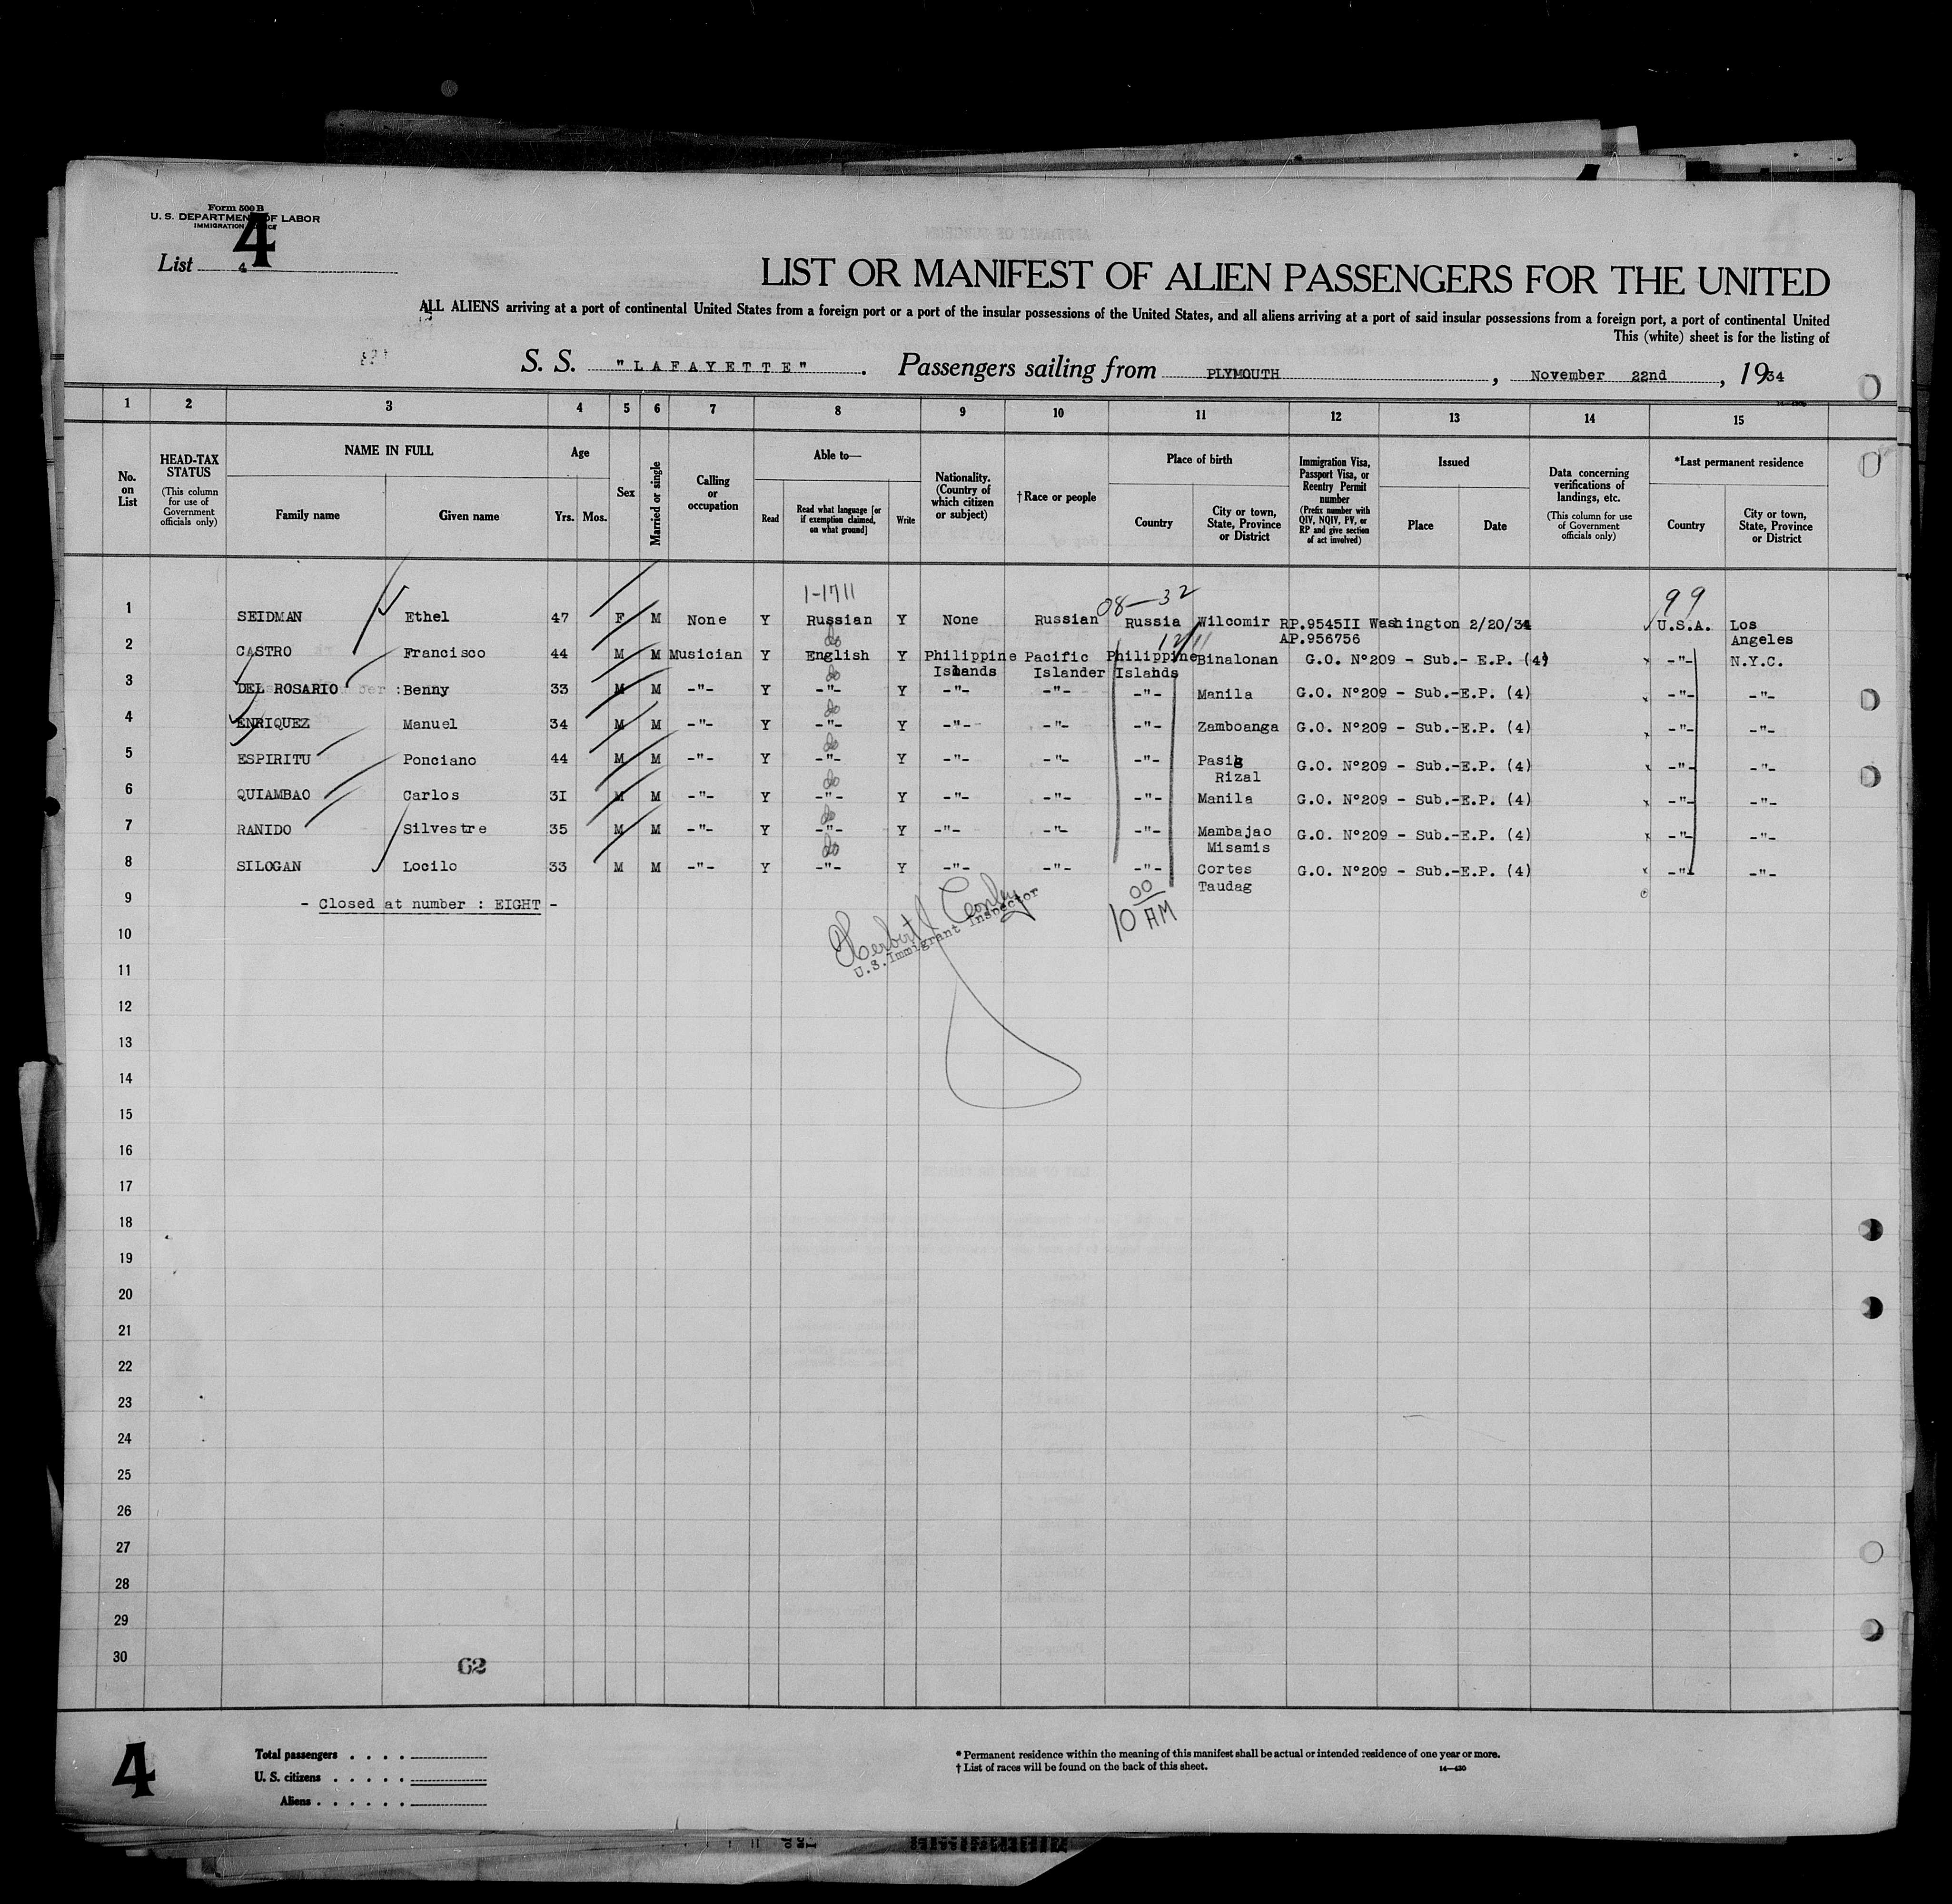 Form 500 B
U. S. DEPARTMENT OF LABOR
IMMIGRATION
4
List 4
LIST OR MANIFEST OF ALIEN PASSENGERS FOR THE UNITED
ALL ALIENS arriving at a port of continental United States from a foreign port or a port of the insular possessions of the United States, and all aliens arriving at a port of said insular possessions from a foreign port, a port of continental United
This (white) sheet is for the listing of
S. S. "LAFAYETTE". Passengers sailing from PLYMOUTH, November 22nd, 1934
1 2 3 4 5 6 7 8 9 10 11 12 13 14 15
No. on List
HEAD-TAX STATUS (This column for use of Government officials only)
NAME IN FULL
Family name Given name
Age
Yrs. Mos.
Sex
Married or single
Calling or occupation
Able to—
Read Read what language [or if exemption claimed, on what ground] Write
Nationality. (Country of which citizen or subject)
† Race or people
Place of birth
Country City or town, State, Province or District
Immigration Visa, Passport Visa, or Reentry Permit number (Prefix number with QIV, NQIV, PV, or RP and give section of act involved)
Issued
Place Date
Data concerning verifications of landings, etc. (This column for use of Government officials only)
*Last permanent residence
Country City or town, State, Province or District
1-1711 08-32 99
1 SEIDMAN Ethel 47 F M None Y Russian Y None Russian Russia Wilcomir RP.9545II Washington 2/20/34 U.S.A. Los Angeles
AP.956756
2 CASTRO Francisco 44 M M Musician Y English Y Philippine Islands Pacific Islander Philippine Islands Binalonan G.O. N°209 - Sub.- E.P. (4) -"- N.Y.C.
3 DEL ROSARIO : Benny 33 M M -"- Y -"- Y -"- -"- -"- Manila G.O. N°209 - Sub.-E.P. (4) -"- -"-
4 ENRIQUEZ Manuel 34 M M -"- Y -"- Y -"- -"- -"- Zamboanga G.O. N°209 - Sub.-E.P. (4) -"- -"-
5 ESPIRITU Ponciano 44 M M -"- Y -"- Y -"- -"- -"- Pasig Rizal G.O. N°209 - Sub.-E.P. (4) -"- -"-
6 QUIAMBAO Carlos 3I M M -"- Y -"- Y -"- -"- -"- Manila G.O. N°209 - Sub.-E.P. (4) -"- -"-
7 RANIDO Silvestre 35 M M -"- Y -"- Y -"- -"- -"- Mambajao Misamis G.O. N°209 - Sub.-E.P. (4) -"- -"-
8 SILOGAN Locilo 33 M M -"- Y -"- Y -"- -"- -"- Cortes Taudag G.O. N°209 - Sub.-E.P. (4) -"- -"-
9 - Closed at number : EIGHT -
10 00
10 AM
U.S. Immigrant Inspector
11
12
13
14
15
16
17
18
19
20
21
22
23
24
25
26
27
28
29
30
62
4
Total passengers . . . .
U. S. citizens . . . . .
Aliens . . . . . .
* Permanent residence within the meaning of this manifest shall be actual or intended residence of one year or more.
† List of races will be found on the back of this sheet. 14—430